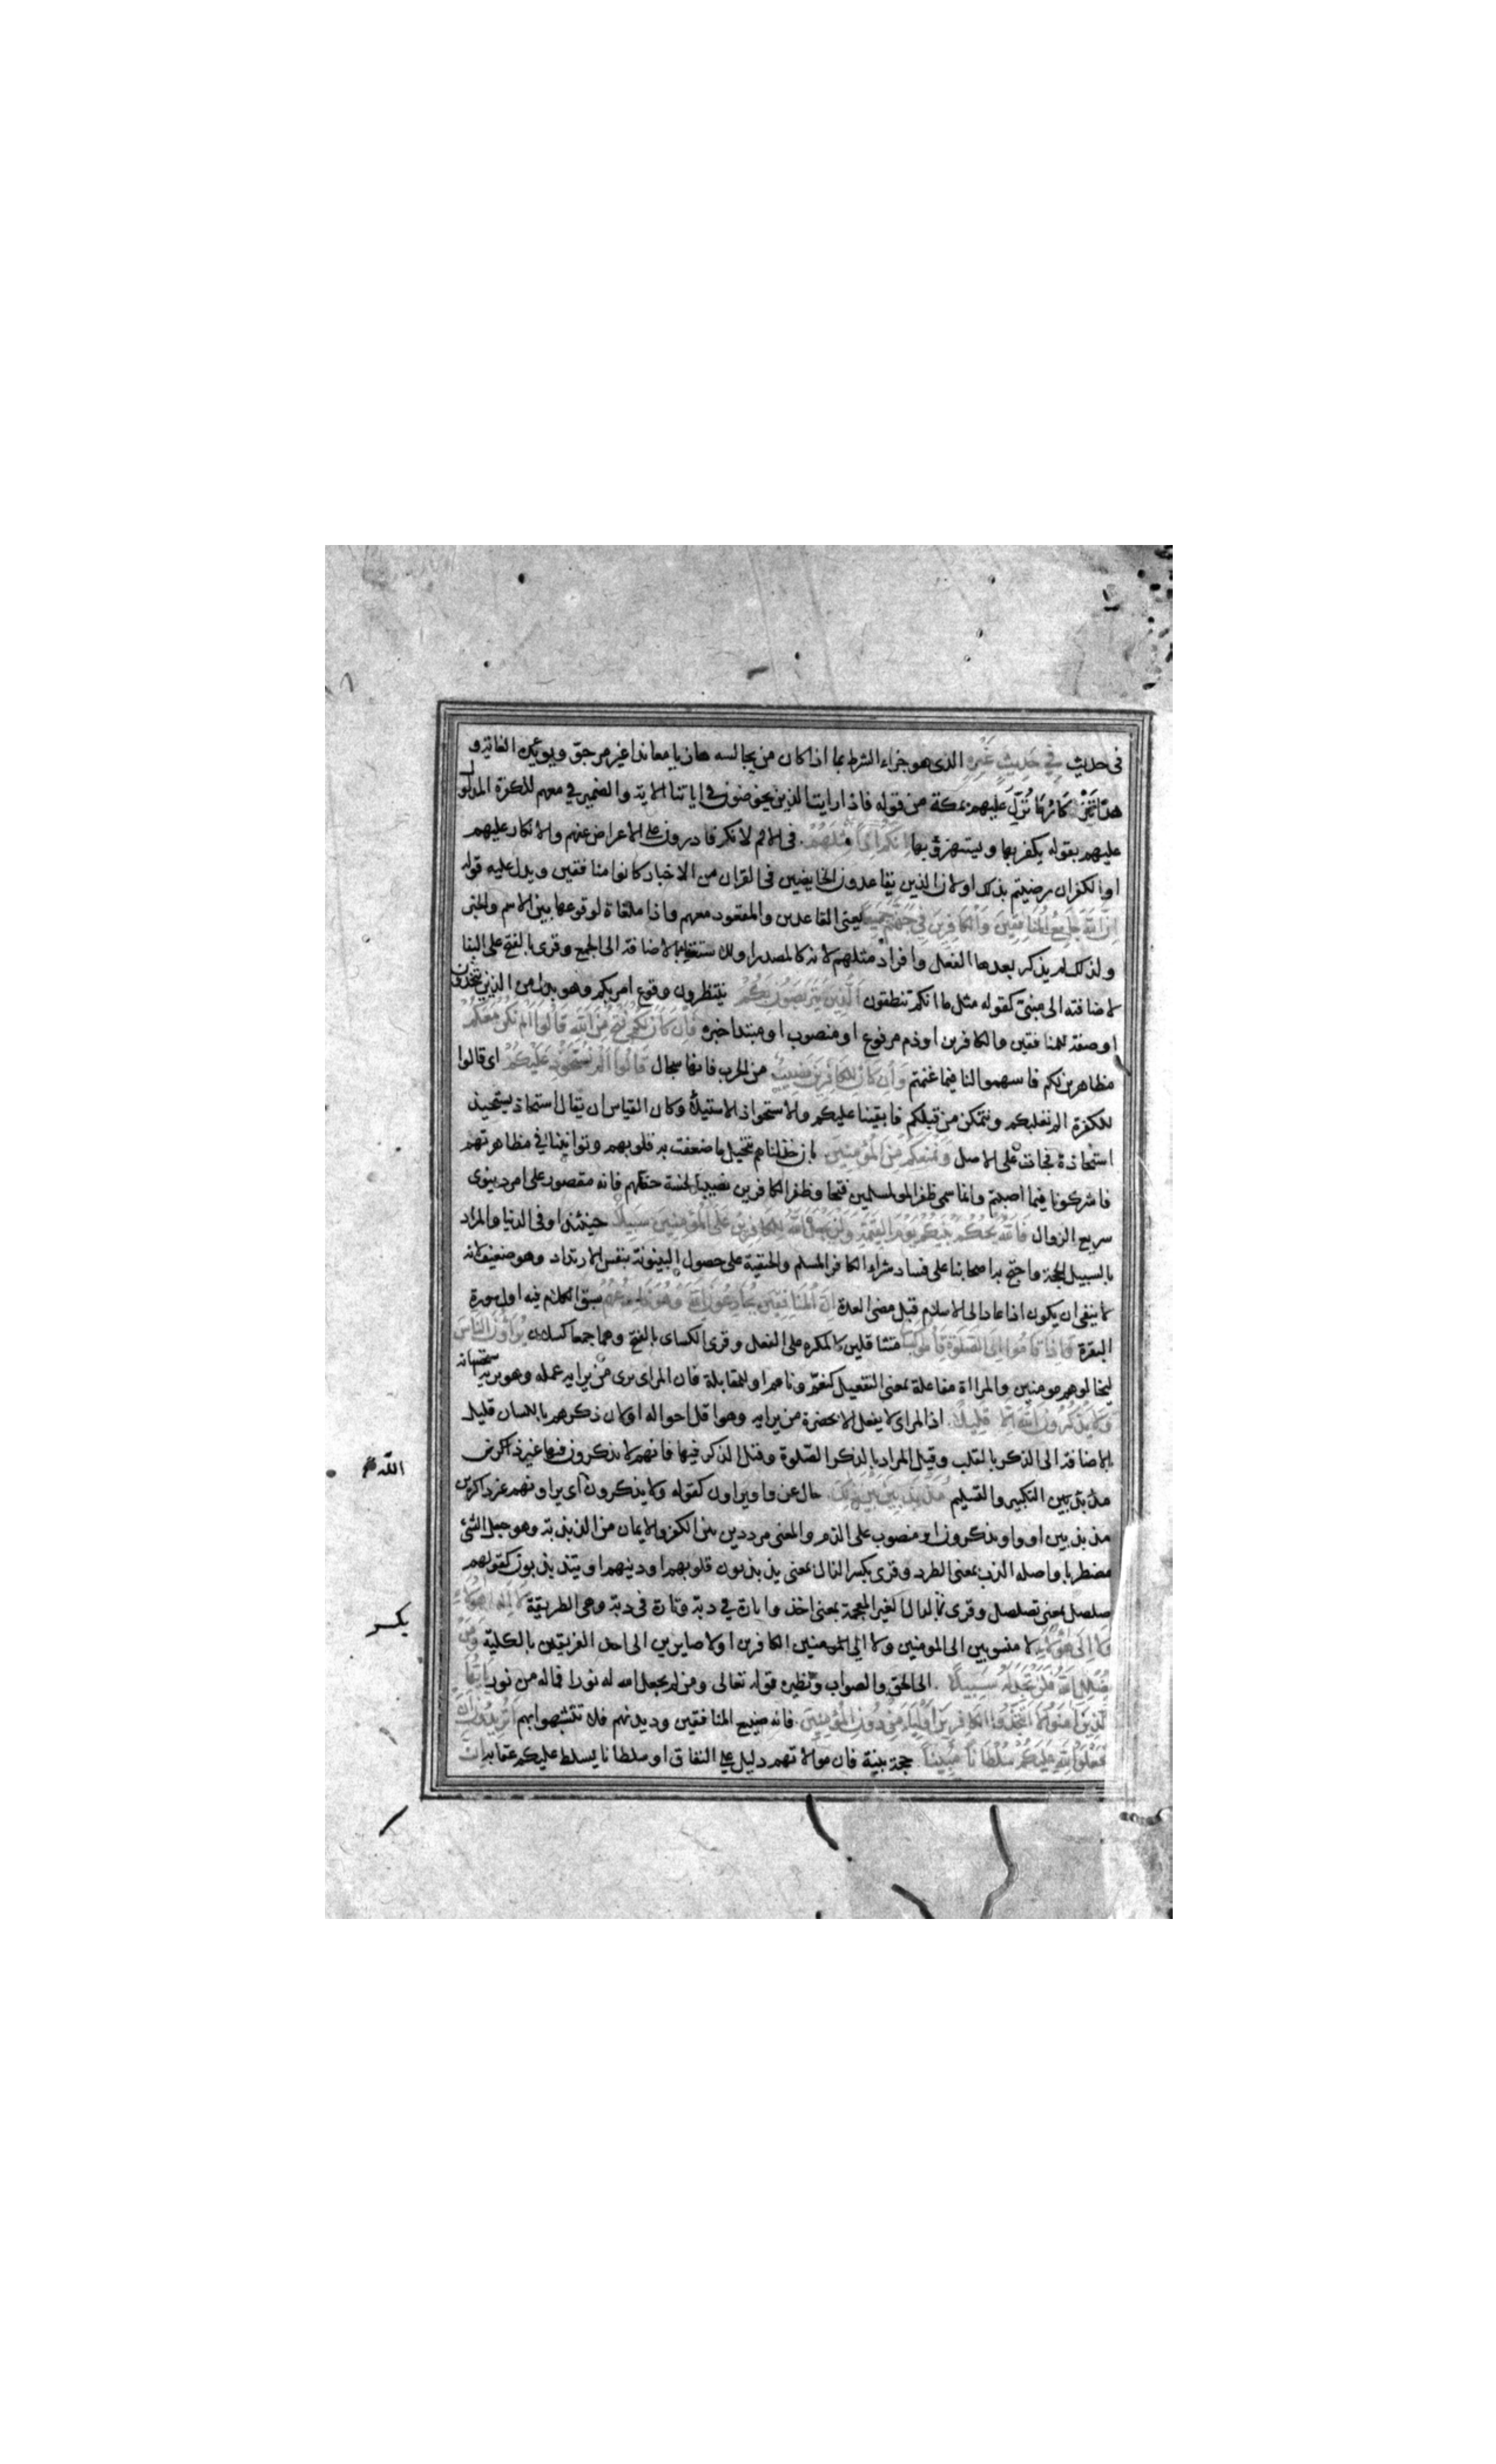 فى حديث فِي حَدِيثٍ غَيْرِهِ الذى هو جزاء الشرط بما اذا كان من يجالسه هازيا معاندا غير مرجو ويؤيده الغاية و
هذا تذكار ما نُزّل عليهم بمكة من قوله فاذا رايت الذين يخوضون فى اياتنا الاية والضمير في معهم للكفرة المدلول
عليهم بقوله يكفر بها ويستهزئ بها اِنَّكُمْ اِذًا مِثْلُهُمْ فى الاثم لانكم قادرون على الاعراض عنهم والانكار عليهم
او الكفر ان رضيتم بذلك او لان الذين يقاعدون الخايضين فى القران من الاحبار كانوا منافقين ويدل عليه قوله
اِنَّ اللَّهَ جَامِعُ الْمُنَافِقِينَ وَالْكَافِرِينَ فِي جَهَنَّمَ جَمِيعًا يعنى القاعدين والمقعود معهم واذا ملغاة لوقوعها بين الاسم والخبر
ولذلك لم يذكر بعدها الفعل وافراد مثلهم لانه كالمصدر او للاستغناء بالاضافة الى الجمع وقرى بالفتح على البنا
لاضافته الى مبنىّ كقوله مثل ما انكم تنطقون اَلَّذِينَ يَتَرَبَّصُونَ بِكُمْ ينتظرون وقوع امر بكم وهو بدل من الذين يتخذون
او صفة للمنافقين والكافرين او ذم مرفوع او منصوب او مبتدا خبره فَاِنْ كَانَ لَكُمْ فَتْحٌ مِنَ اللَّهِ قَالُوا اَلَمْ نَكُنْ مَعَكُمْ
مظاهرين لكم فاسهموا لنا فيما غنمتم وَاِنْ كَانَ لِلْكَافِرِينَ نَصِيبٌ من الحرب فانها سجال قَالُوا اَلَمْ نَسْتَحْوِذْ عَلَيْكُمْ اى قالوا
للكفرة الم نغلبكم ونتمكن من قتلكم فابقينا عليكم والاستحواذ الاستيلاء وكان القياس ان يقال استحاذ يستحيذ
استحاذة فجات على الاصل وَنَمْنَعْكُمْ مِنَ الْمُؤْمِنِينَ بان خذلناهم بتخييل ما ضعفت به قلوبهم وتوانينا في مظاهرتهم
فاشركونا فيما اصبتم وانما سمى ظفر المسلمين فتحا وظفر الكافرين نصيبا لخسة حظهم فانه مقصور على امر دنيوى
سريع الزوال فَاللَّهُ يَحْكُمُ بَيْنَكُمْ يَوْمَ الْقِيٰمَةِ وَلَنْ يَجْعَلَ اللَّهُ لِلْكَافِرِينَ عَلَى الْمُؤْمِنِينَ سَبِيلًا حينئذ او فى الدنيا والمراد
بالسبيل الحجة واحتج به اصحابنا على فساد شراء الكافر المسلم والحنفية على حصول البينونة بنفس الارتداد وهو ضعيف لانه
لا ينفى ان يكون اذا عاد الى الاسلام قبل مضى العدة اِنَّ الْمُنَافِقِينَ يُخَادِعُونَ اللَّهَ وَهُوَ خَادِعُهُمْ سبق الكلام فيه اول سورة
البقرة وَاِذَا قَامُوا اِلَى الصَّلٰوةِ قَامُوا كُسَالَى متثاقلين كالمكره على الفعل وقرى الكسالى بالفتح وهما جمعا كسلان يُرَاؤُنَ النَّاسَ
ليخالوهم مومنين والمرااة مفاعلة بمعنى التفعيل كنعّم وناعم او للمقابلة فان المراى يرى من يرايه عمله وهو يريه استحسانه
وَلَا يَذْكُرُونَ اللَّهَ اِلَّا قَلِيلًا اذ المراى لا يفعل الا بحضرة من يرايه وهو اقل احواله او لان ذكرهم باللسان قليل
بالاضافة الى الذكر بالقلب وقيل المراد بالذكر الصّلوة وقيل الذكر فيها فانهم لا يذكرون فيها غير
بين التكبير والتسليم مُذَبْذَبِينَ بَيْنَ ذَلِكَ حال من واو يراون كقوله ولا يذكرون اى يراونهم غير ذاكرين
مذبذبين او واو يذكرون او منصوب على الذم والمعنى مرددين بين الكفر والايمان من الذبذبة وهو جعل الشئ
مضطربا واصله الذب بمعنى الطرد وقرى بكسر الذال بمعنى يذبذبون قلوبهم او دينهم او يتذبذبون كقولهم
صلصل بمعنى تصلصل وقرى بالدال الغير المعجمة بمعنى اخذوا تارة في دبّة وتارة فى دبّة وهى الطريقة لَا اِلَى هٰؤُلَاءِ
وَلَا اِلَى هٰؤُلَاءِ لا منسوبين الى المومنين ولا الى الكافرين او لا صايرين الى احد الفريقين بالكلية وَمَنْ
يُضْلِلِ اللَّهُ فَلَنْ تَجِدَ لَهُ سَبِيلًا الى الحق والصواب ونظيره قوله تعالى ومن لم يجعل الله له نورا فما له من نور يَا اَيُّهَا
الَّذِينَ آمَنُوا لَا تَتَّخِذُوا الْكَافِرِينَ اَوْلِيَاءَ مِنْ دُونِ الْمُؤْمِنِينَ فانه صنيع المنافقين وديدنهم فلا تتشبهوا بهم اَتُرِيدُونَ اَنْ
تَجْعَلُوا لِلَّهِ عَلَيْكُمْ سُلْطَانًا مُبِينًا حجة بينة فان موالاتهم دليل على النفاق او سلطانا يسلط عليكم عقابه اِنَّ
الله
بكسر